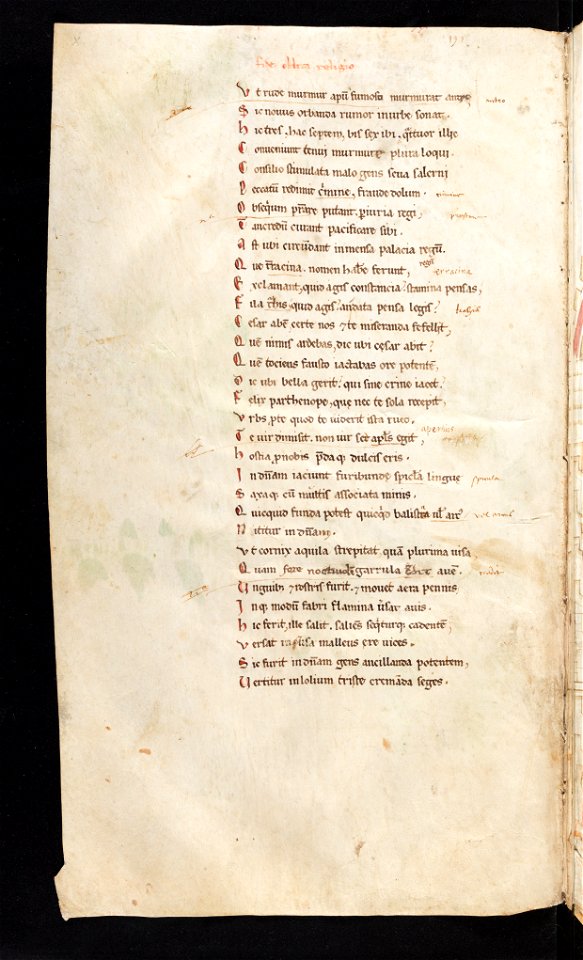 Ut rude murmur apū fumosi murmurat antri
Sic novus orbanda rumor in urbe sonat.
Hic tres, hac septem, bis sex ibi, q̄tuor illic
Conveniunt tenui murmure plura loqui.
Consilio stimulata malo gens seva salerni
Peccatū redimit c̄mine, fraude dolum.
Obseq̄ium p̄stare putant, ꝑiuria regi,
Tancredū curant pacificare sibi.
Ast ubi circūdant inmensa palacia regū.
Que t̄racina nomen hab̄e ferunt,
Exclamant, quid agis constancia? stamina pensas,
Fila trahis, quid agis? an data pensa legis?
Cesar abē, certe nos & te miseranda fefellit,
Quē nimis ardebas, dic ubi cęsar abit?
Quē tociens fausto iactabas ore potentē,
Dic ubi bella gerit? qui sine crine iacet.
Felix parthenope, que nec te sola recepit,
Urbs ꝓpte quod te viderit ista ruet.
Te vir dimisit. non vir set apl̄s egit,
Hostia ꝓ nobis p̄daq̄ dulcis eris.
In dn̄am iaciunt furibundę spicla linguę
Saxaq̄ cū multis associata minis.
Quicquid funda potest quicq̄d balistra ul̄ arc᷒
Nititur in dn̄am.
Ut cornix aquila strepitat, quā plurima visa,
Quam fere noctivolē garrula avē.
Unguibʒ & rostris furit. & movet aera pennis
Inq̄ modū fabri flamina v̄sat avis.
Hic ferit, ille salit. saliēs seq̄turq̄ cadentē,
Versat malleus ere vices.
Sic furit in dn̄am gens ancillanda potentem,
Vertitur in lolium triste cremāda seges.